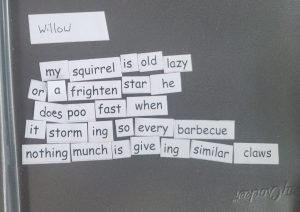 Willow
my squirrel is old lazy
or a frighten star he
does poo fast when
it storm ing so every barbecue
nothing munch is give ing similar claws